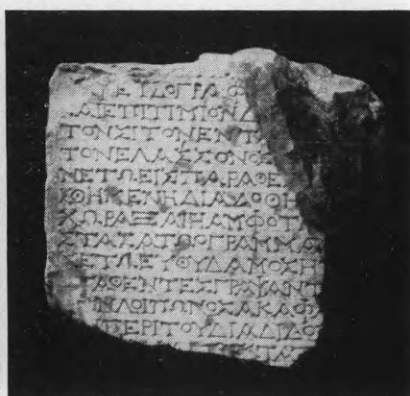 ΕΥΔΟΓΡΑΦ
ΑΙΕΠΙΤΙΜΙΟΝΔ
ΤΟΝΣΙΤΟΝΕΝΤ
ΤΟΝΕΛΑΣΣΟΝΟΣ
ΝΕΤΩΕΙΣΠΑΡΑΘΕ
ΚΘΗΚΕΝΗΔΙΑΔΟΘΗ
ΧΩΡΑΞΑΙΗΑΜΦΟΤ
ΣΤΑΣΑΤΩΟΓΡΑΜΜΑ
ΕΤΩΣΟΥΔΑΜΟΣΗ
ΤΑΘΕΝΤΕΣΓΡΑΨΑΝΤ
ΝΛΟΙΠΩΝΟΣΑΚΑΦ
ΠΕΡΙΤΟΥΔΙΑΔΙΔΟ